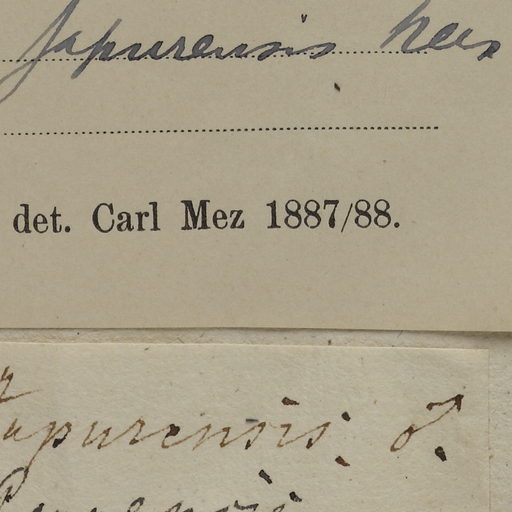 japurensis Nees
det. Carl Mez 1887/88.
Japurensis. ♂.